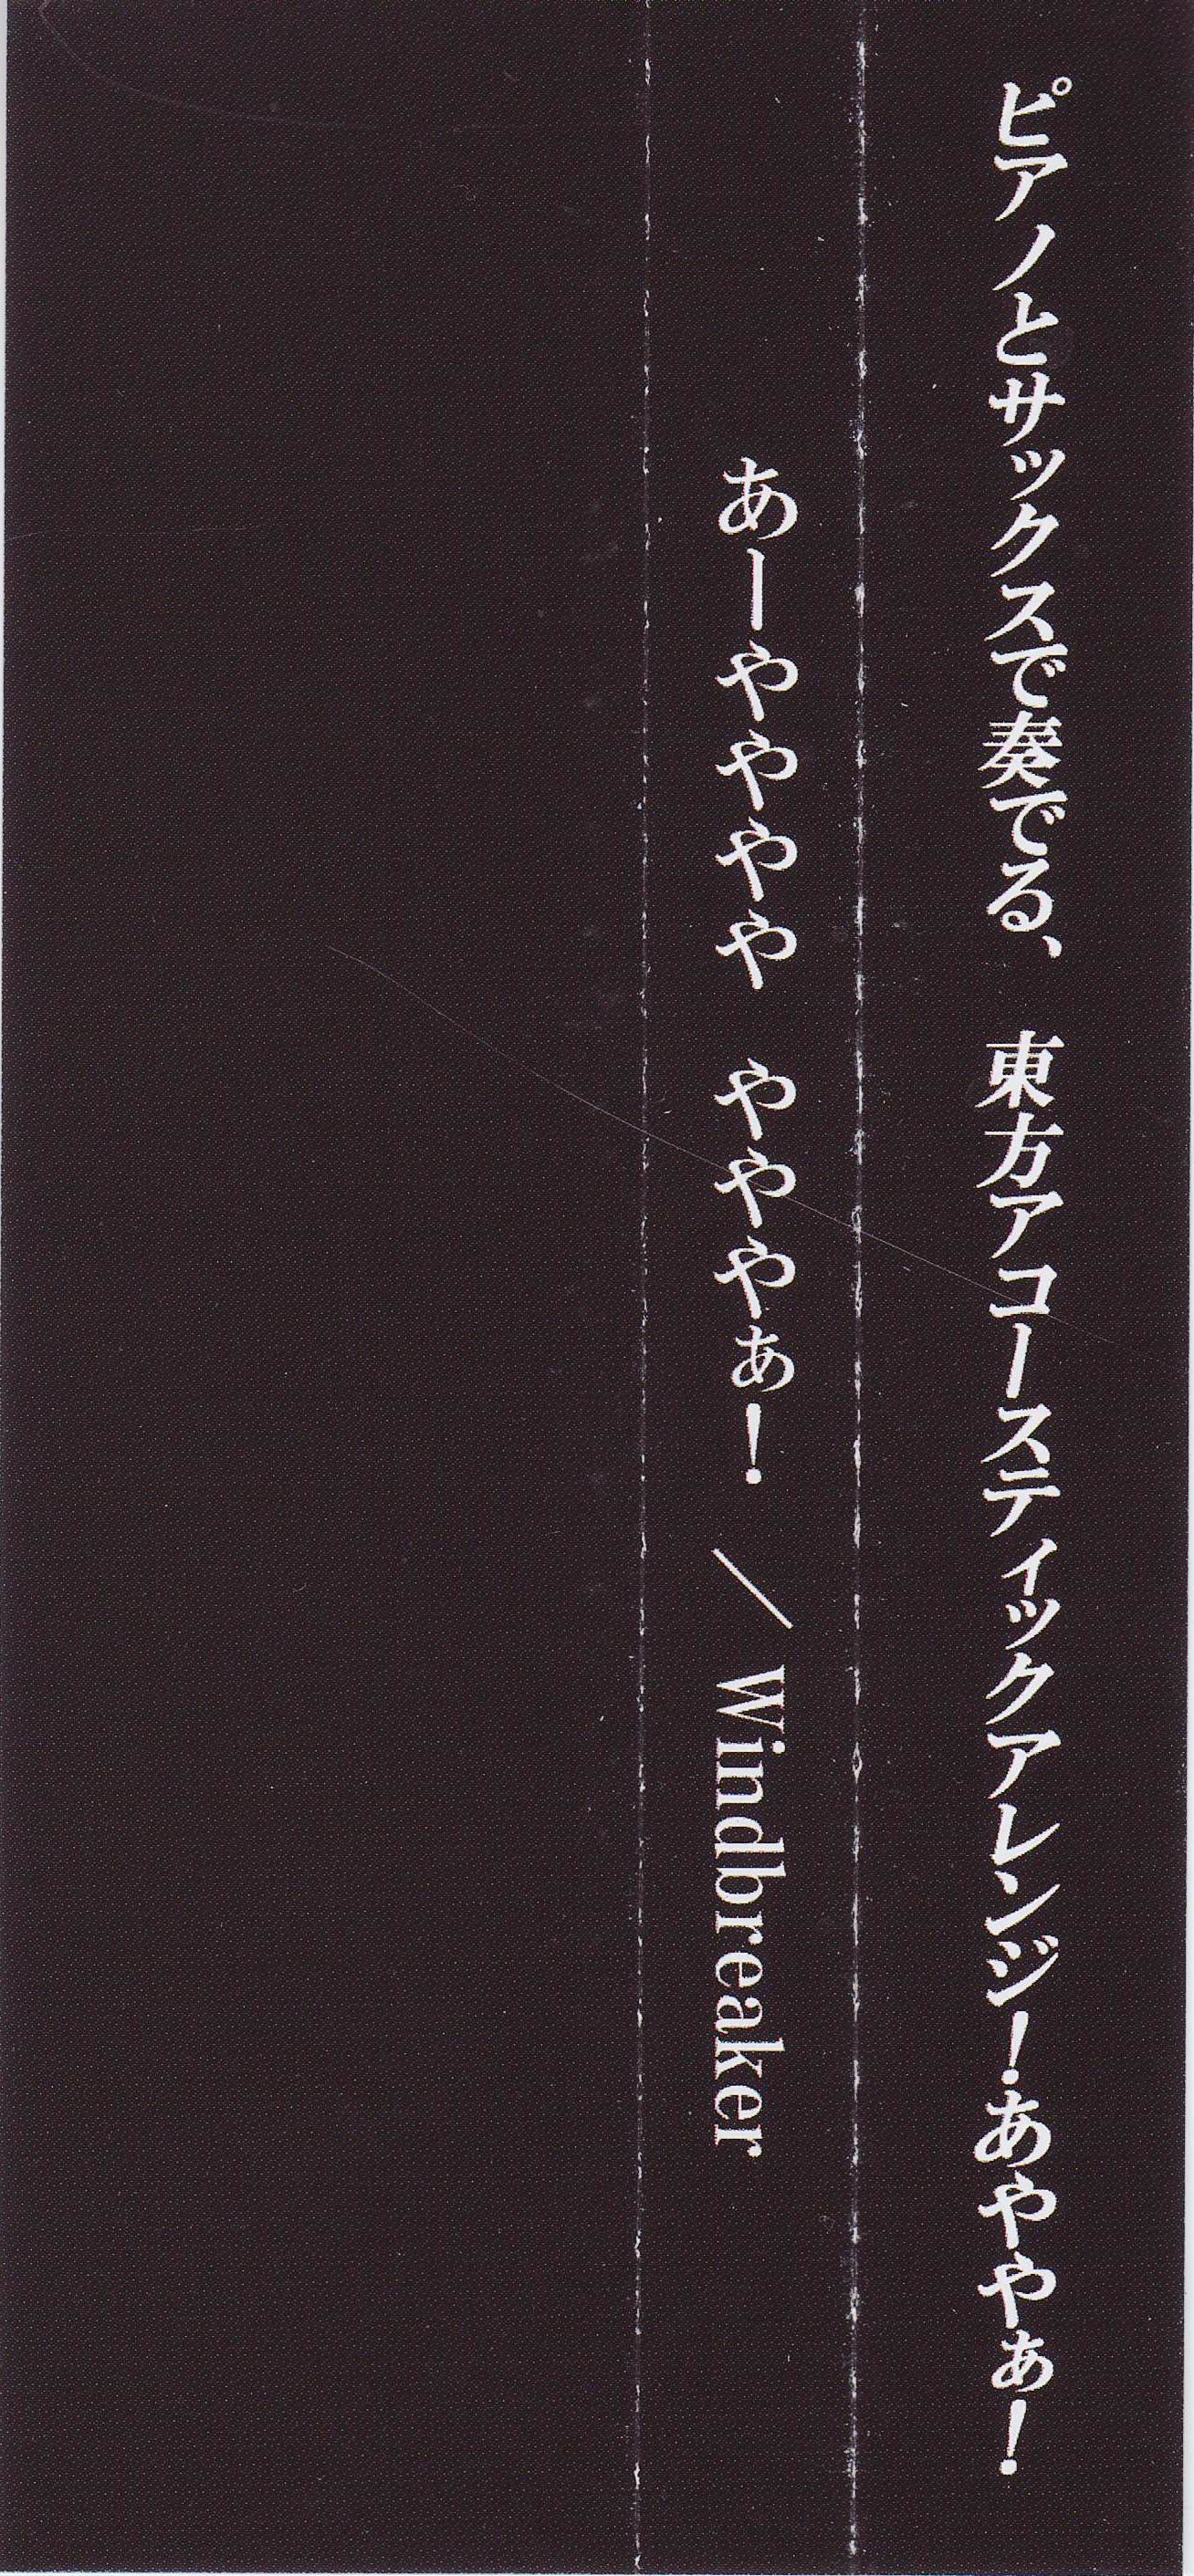 ピアノとサックスで奏でる、　東方アコースティックアレンジ！あややぁ！
あーやややや　やややぁ！　／ Windbreaker